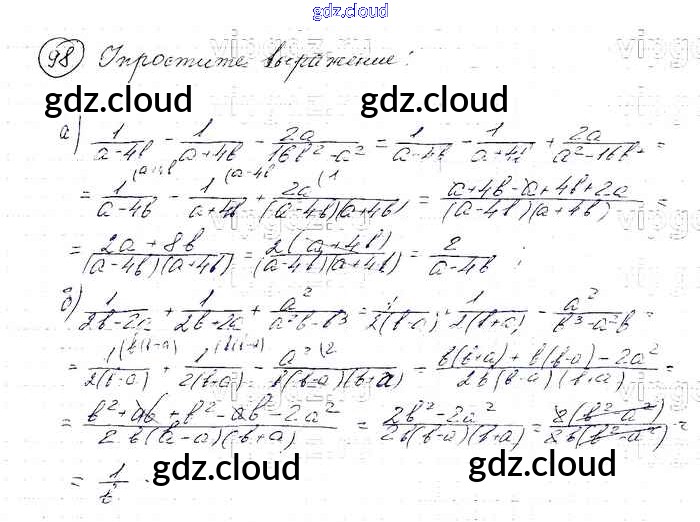 gdz.cloud
98 Упростите выражение:
gdz.cloud gdz.cloud
а) 1/(a-4b) - 1/(a+4b) - 2a/(16b²-a²) = 1/(a-4b) - 1/(a+4b) + 2a/(a²-16b²) =
= 1/(a-4b) (a+4b - 1/(a+4b) (a-4b + 2a/((a-4b)(a+4b)) (1 = (a+4b-a+4b+2a)/((a-4b)(a+4b)) =
= (2a+8b)/((a-4b)(a+4b)) = 2(a+4b)/((a-4b)(a+4b)) = 2/(a-4b) ;
б) 1/(2b-2a) + 1/(2b+2a) + a²/(a²b-b³) = 1/(2(b-a)) + 1/(2(b+a)) - a²/(b³-a²b) =
= 1/(2(b-a)) + 1/(2(b+a)) - a²/(b(b-a)(b+a)) (2 = (b(b+a)+b(b-a)-2a²)/(2b(b-a)(b+a)) =
= (b²+ab+b²-ab-2a²)/(2b(b-a)(b+a)) = (2b²-2a²)/(2b(b-a)(b+a)) = 2(b²-a²)/(2b(b²-a²)) =
= 1/b .
gdz.cloud gdz.cloud